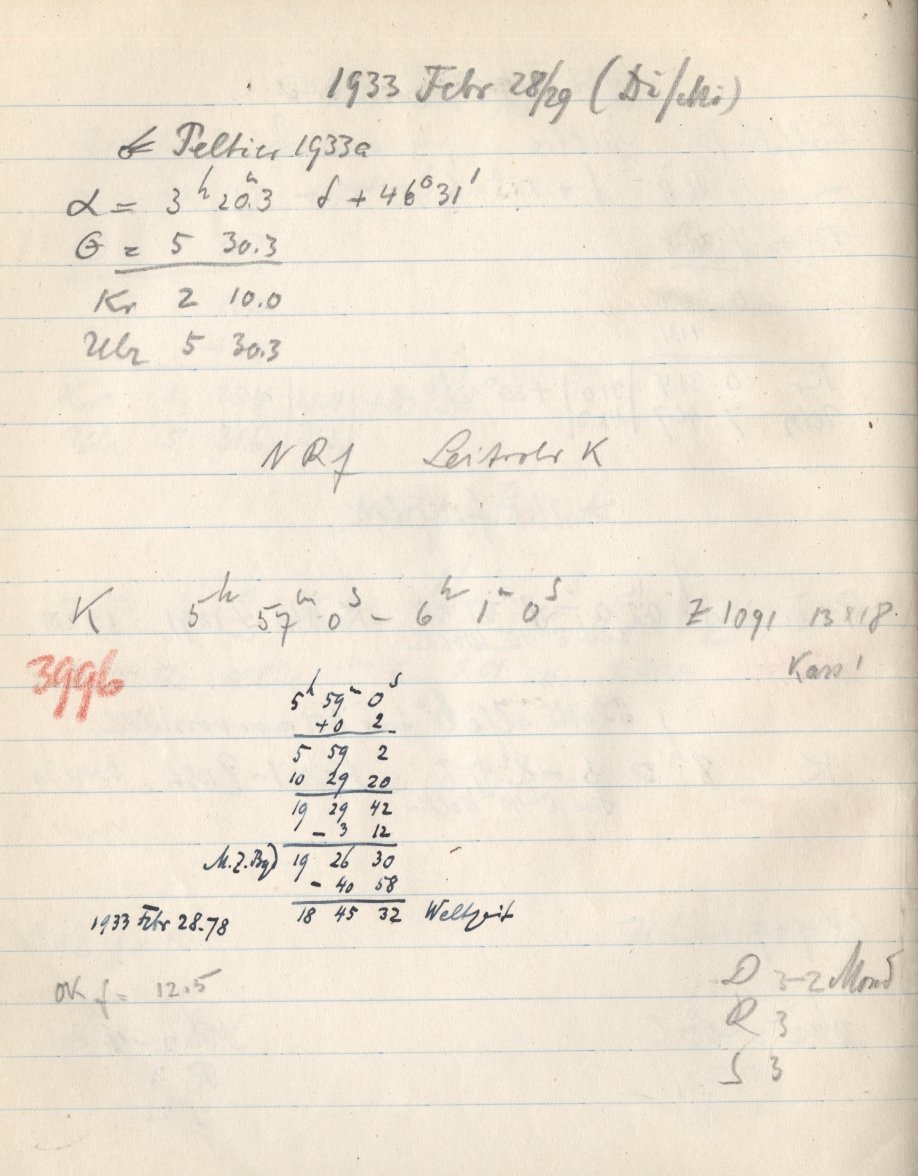 1933 Febr 28/29 (Di/Mi)
☄ Peltier 1933a
α = 3ʰ 20ᵐ.3 δ + 46° 31'
Θ = 5 30.3
Kr 2 10.0
Uhr 5 30.3
N R f Leitrohr K
K 5ʰ 57ᵐ 0ˢ – 6ʰ 1ᵐ 0ˢ Z 1091 13x18.
3996
5ʰ 59ᵐ 0ˢ
+0 2
5 59 2
10 29 20
19 29 42
– 3 12
M.Z.Bg) 19 26 30
– 40 58
1933 Febr 28.78 18 45 32 Weltzeit
OK f = 12.5
D 3–2 Mond
R 3
S 3